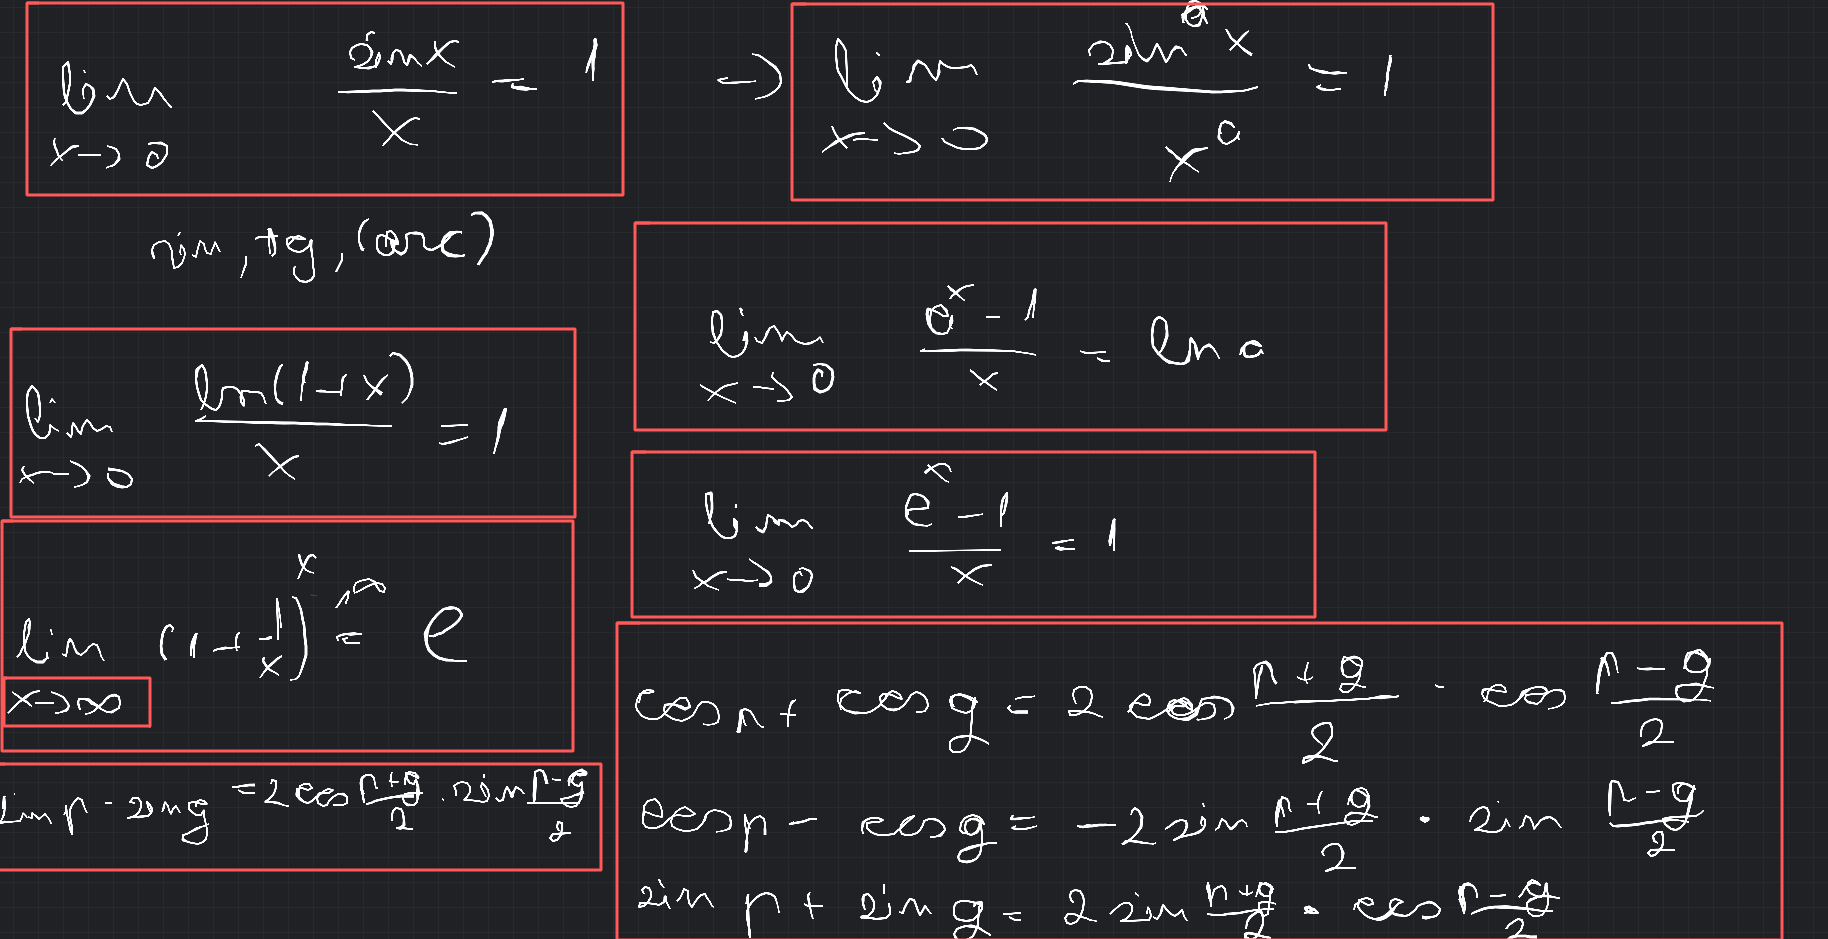 lim x→0 sinx/x = 1 → lim x→0 sin^a x / x^a = 1
sin, tg, (arc)
lim x→0 (a^x - 1)/x = ln a
lim x→0 ln(1+x)/x = 1
lim x→0 (e^x - 1)/x = 1
lim x→∞ (1+1/x)^x = 1^∞ e
cos p + cos q = 2 cos (p+q)/2 · cos (p-q)/2
sin p - sin q = 2 cos (p+q)/2 · sin (p-q)/2
cos p - cos q = -2 sin (p+q)/2 · sin (p-q)/2
sin p + sin q = 2 sin (p+q)/2 · cos (p-q)/2